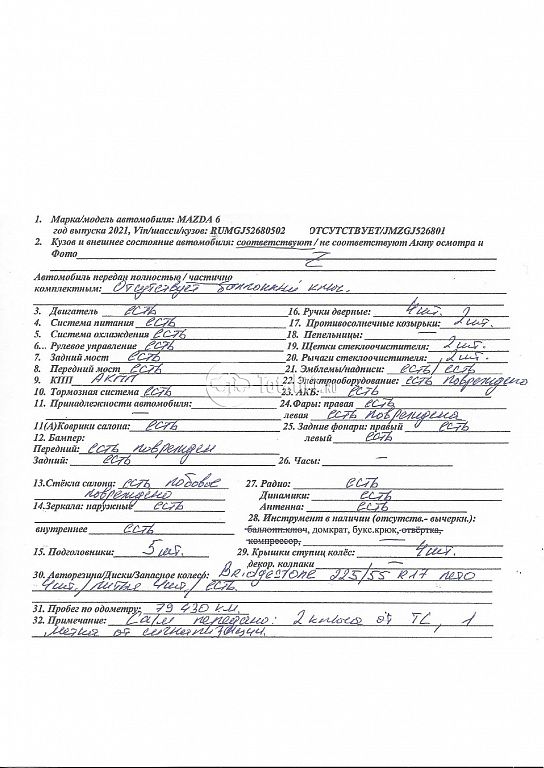 1. Марка/модель автомобиля: MAZDA 6
год выпуска 2021, Vin/шасси/кузов: RUMGJ52680502 ОТСУТСТВУЕТ/JMZGJ526801
2. Кузов и внешнее состояние автомобиля: соответствуют / не соответствуют Акту осмотра и
Фото Z
Автомобиль передан полностью / частично
комплектным: Отсутствует баллонный ключ.
3. Двигатель есть 16. Ручки дверные: 4 шт.
4. Система питания есть 17. Противосолнечные козырьки: 2 шт.
5. Система охлаждения есть 18. Пепельницы: —
6... Рулевое управление есть 19. Щетки стеклоочистителя: 2 шт.
7. Задний мост есть 20. Рычаги стеклоочистителя: 2 шт.
8. Передний мост есть 21. Эмблемы/надписи: есть/ есть
9. КПП АКПП 22. Электрооборудование: есть повреждено
10. Тормозная система есть 23. АКБ: есть
11. Принадлежности автомобиля: 24.Фары: правая есть
— левая есть повреждена
11(А)Коврики салона: есть 25. Задние фонари: правый есть
12. Бампер: левый есть
Передний: есть поврежден
Задний: есть 26. Часы: —
13.Стёкла салона: есть лобовое 27. Радио: есть
повреждено Динамики: есть
14.Зеркала: наружные есть Антенна: есть
28. Инструмент в наличии (отсутств.- вычерки.):
внутреннее есть баллонн.ключ, домкрат, букс.крюк, отвёртка,
компрессор, —
15. Подголовники: 5 шт. 29. Крышки ступиц колёс: 4 шт.
декор. колпаки —
30. Авторезина/Диски/Запасное колесо: Bridgestone 225/55 R17 лето
4 шт./ литые 4 шт/ есть
31. Пробег по одометру: 79 430 км.
32. Примечание: С а/м передано: 2 ключа от ТС, 1
метка от сигнализации.